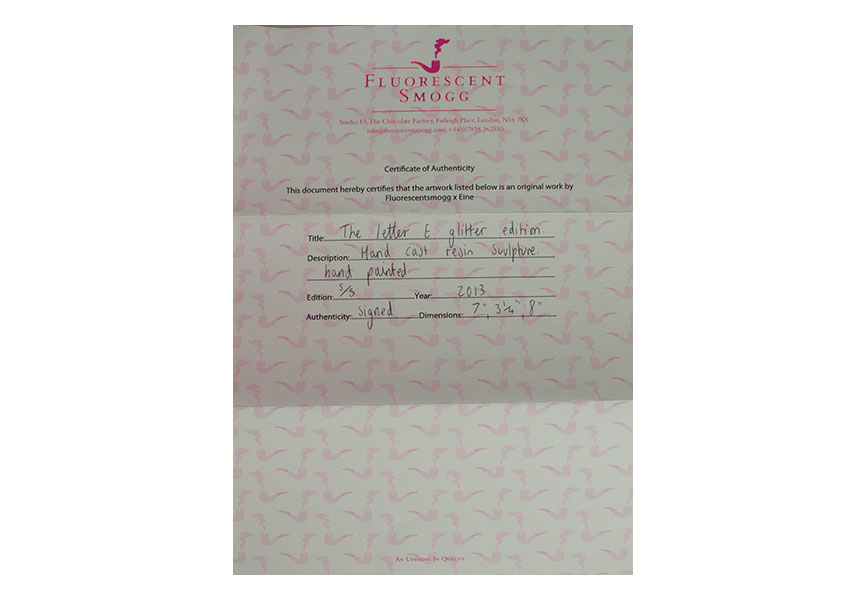 FLUORESCENT
SMOGG
Studio F3, The Chocolate Factory, Farleigh Place, London, N16 7SX
info@fluorescentsmogg.com, +44(0)7838 262350
Certificate of Authenticity
This document hereby certifies that the artwork listed below is an original work by
Fluorescentsmogg x Eine
Title: The letter E. glitter edition.
Description: Hand cast resin sculpture.
hand painted
Edition: 5/5 Year: 2013
Authenticity: signed Dimensions: 7", 3¼", 8"
AN UPRISING IN QUALITY